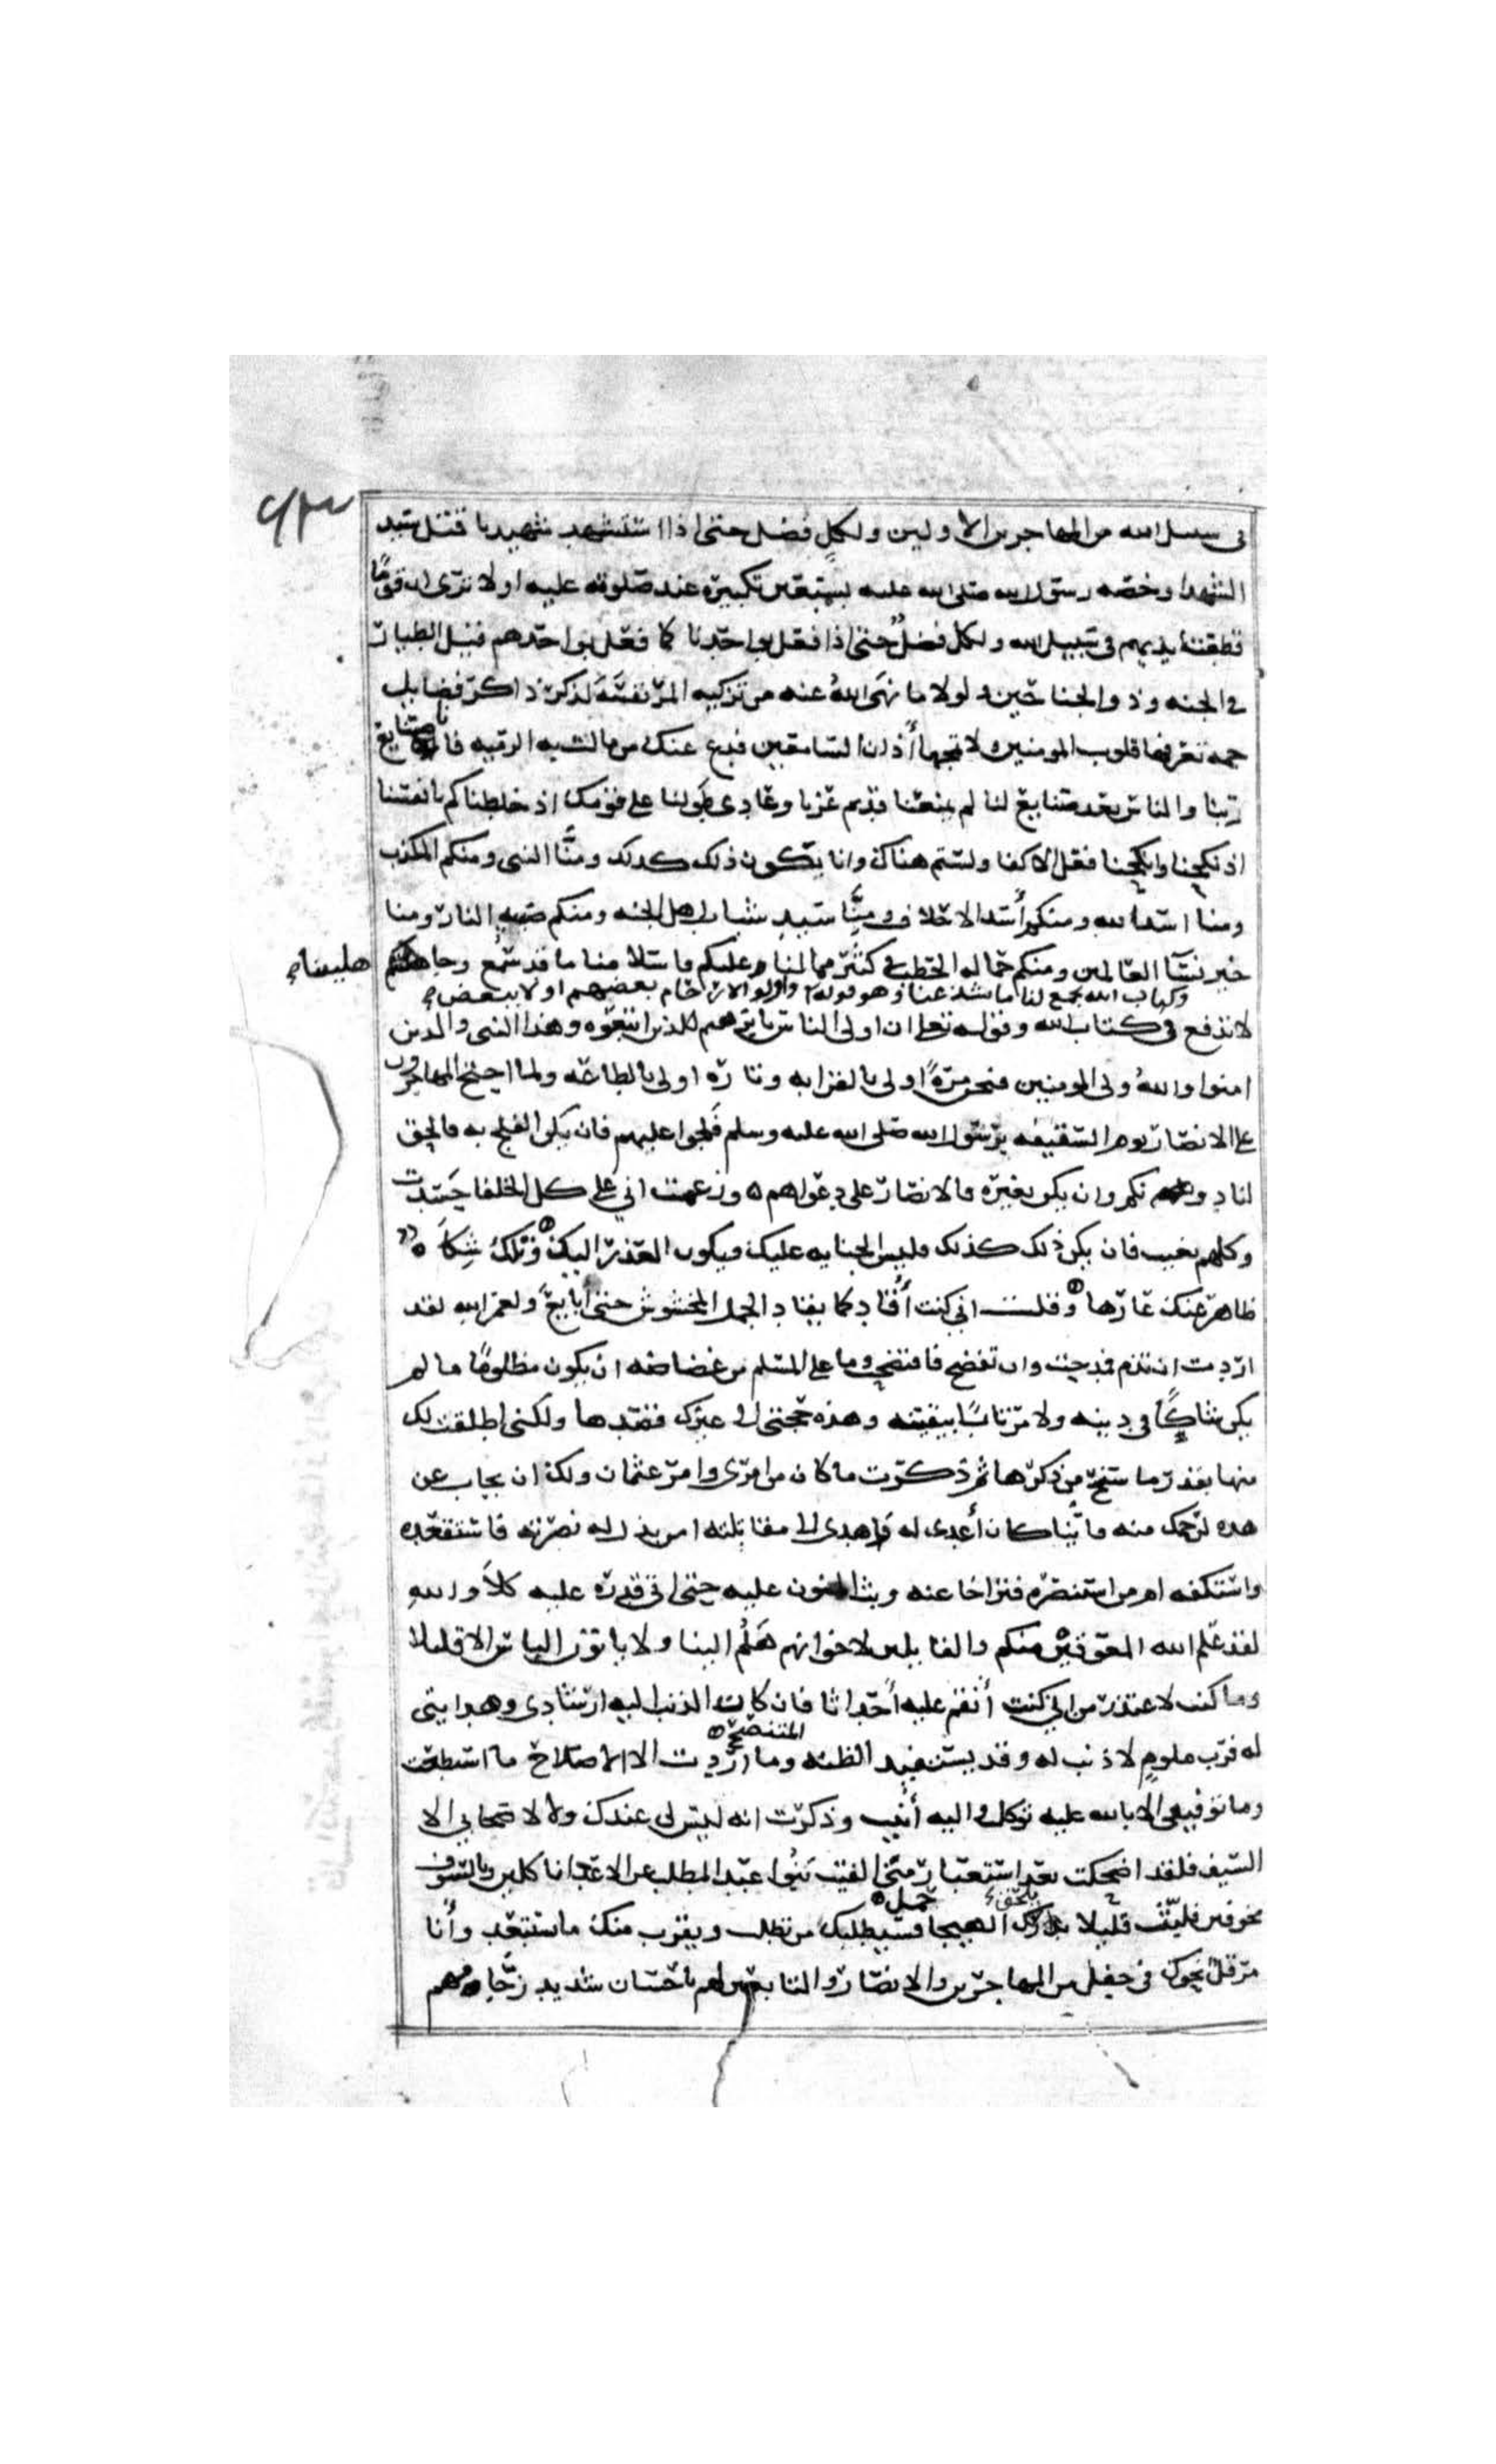 في سبيل الله من المهاجرين الاولين ولكل فضل حتى اذا استشهد شهيدنا قتل سيد
الشهدا وخصه رسول الله صلى الله عليه بسبعين تكبيرة عند صلوته عليه اولا ترى ان قوما
قطعت ايديهم في سبيل الله ولكل فضل حتى اذا فعل بواحدنا كما فعل بواحدهم قيل الطيار
في الجنه وذو الجناحين ولولا ما نهى الله عنه من تزكيه المر نفسه لذكر ذاكر فضايل
جمه تعرفها قلوب المومنين ولا تمجها أذان السامعين فدع عنك من مالت به الرميه فانا صنايع
ربنا والناس بعد صنايع لنا لم يمنعنا قديم عزنا وعادى طولنا على قومك ان خلطناكم بانفسنا
اذ نكحنا وانكحنا فعل الاكفا ولستم هناك وانا يكون ذلك كذلك ومنا النبى ومنكم المكذب
ومنا اسد الله ومنكم أسد الاحلاف ومنا سيد شباب اهل الجنه ومنكم صبيه النار ومنا
خير نسآ العالمين ومنكم حماله الحطب في كثير مما لنا وعليكم فاسلامنا ما قد سمع وجاهليتنا
وكتاب الله يجمع لنا ما شذ عنا وهو قوله واولو الارحام بعضهم اولا ببعض
لا تدفع في كتاب الله وقوله تعا ان اولى الناس بابرهيم للذين اتبعوه وهذا النبى والذين
امنوا والله ولي المومنين فنحن مرة اولى بالقرابه وتارة اولى بالطاعه ولما احتج المهاجرون
على الانصار يوم السقيفه برسول الله صلى الله عليه وسلم فلجوا عليهم فان يكن الفلج به فالحق
لنا دونكم وان يكن بغيره فالانصار على دعواهم ه وزعمت اني على كل الخلفا حسدت
وكلهم بغيت فان يكن ذلك كذلك فليس الجنايه عليك فيكون العذر اليك وتلك شكاة
ظاهر عنك عارها وقلت اني كنت أقاد كما يقاد الجمل المخشوش حتى ابايع ولعمر الله لقد
اردت ان تذم فمدحت وان تفضح فافتضحت وما على المسلم من غضاضه ان يكون مظلوما ما لم
يكن شاكا في دينه ولا مرتابا بيقينه وهذه حجتي الى غيرك قصدها ولكنى اطلقت لك
منها بقدر ما سنح من ذكرها ثم ذكرت ما كان من امرى وامر عثمان ولك ان تجاب عن
هذه لرحمك منه فاينا كان أعدى له واهدى الى مقاتلته امن بذل له نصرته فاستقعده
واستكفه ام من استنصره فتراخا عنه وبث المنون عليه حتى اتى قدره عليه كلا والله
لقد علم الله المعوقين منكم والقايلين لاخوانهم هلم الينا ولا ياتون الباس الا قليلا
وما كنت لاعتذر من اني كنت أنقم عليه أحداثا فان كان الذنب اليه ارشادى وهدايتى
له فرب ملوم لا ذنب له وقد يستفيد الظنه المتنصح وما اردت الا الاصلاح ما استطعت
وما توفيقى الا بالله عليه توكلت واليه أنيب وذكرت انه ليس لى عندك ولا لاصحابي الا
السيف فلقد اضحكت بعد استعبار متى الفيت بنوا عبد المطلب عن الاعدا ناكلين وبالسيوف
مخوفين فلبث قليلا يلحق الهيجا حمل فسيطلبك من تطلب ويقرب منك ما تستبعد وأنا
مرقل نحوك في جحفل من المهاجرين والانصار والتابعين لهم باحسان شديد زحامهم